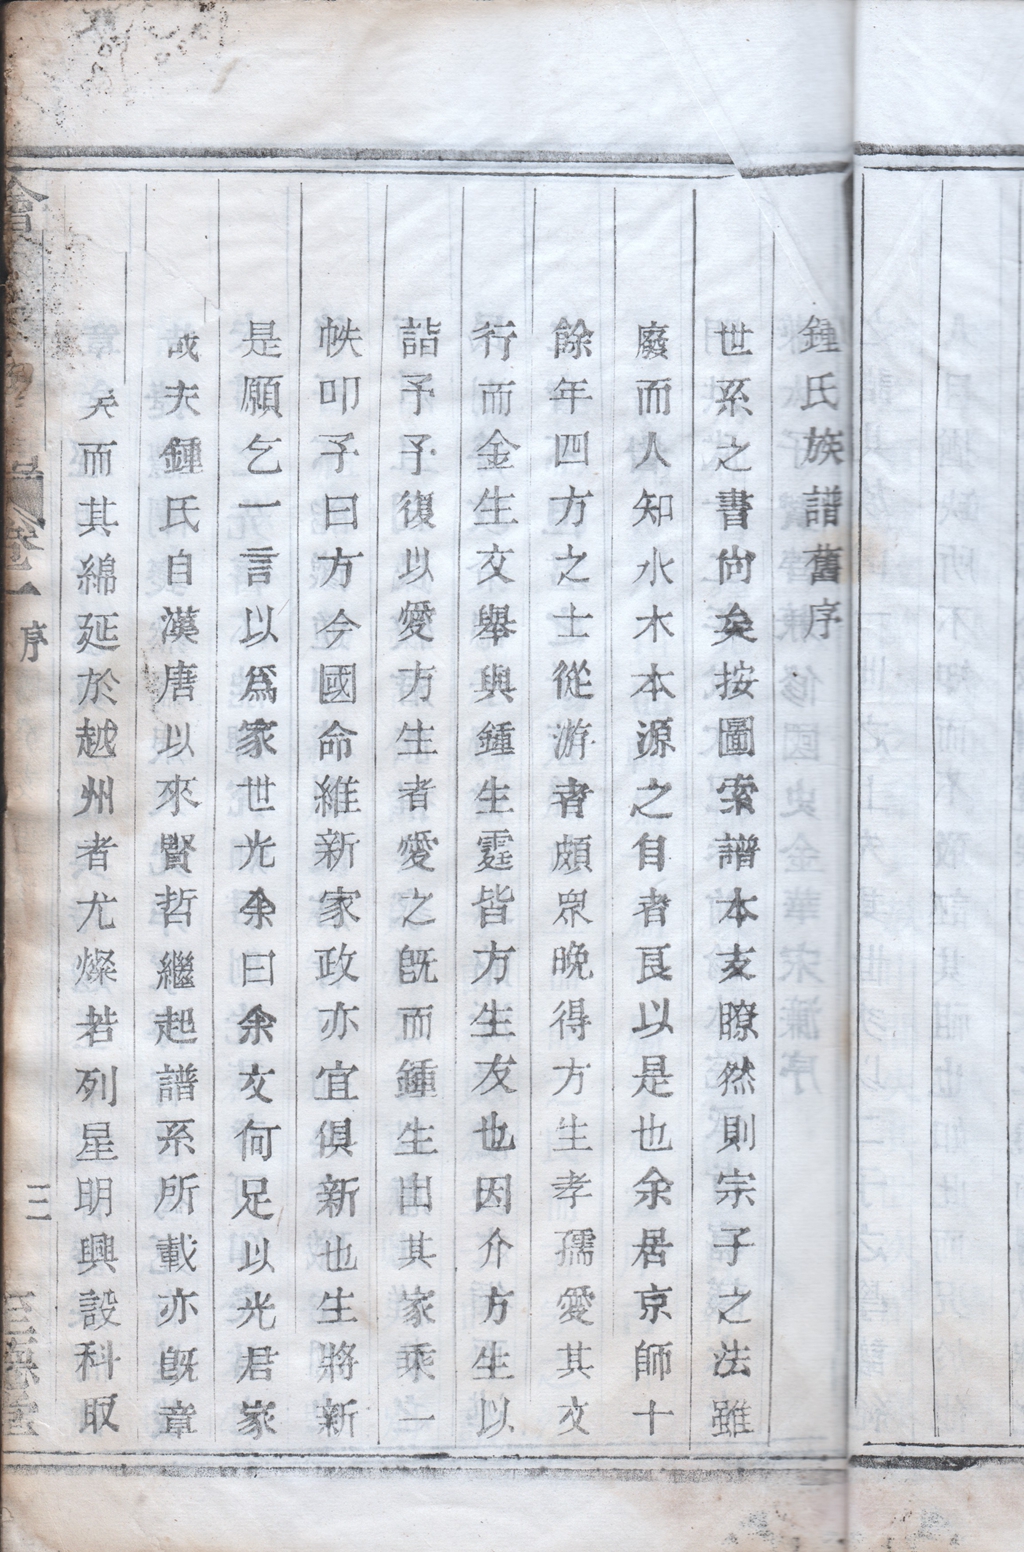 鍾氏族譜舊序
世系之書尙矣按圖索譜本支瞭然則宗子之法雖
廢而人知水木本源之自者良以是也余居京師十
餘年四方之士從游者頗眾晚得方生孝孺愛其文
行而金生文舉與鍾生霆皆方生友也因介方生以
詣予予復以愛方生者愛之旣而鍾生出其家乘一
帙叩予曰方今國命維新家政亦宜俱新也生將新
是願乞一言以爲家世光余曰余文何足以光君家
哉夫鍾氏自漢唐以來賢哲繼起譜系所載亦旣章
矣而其綿延於越州者尤燦若列星明興設科取
會
卷一 序
三